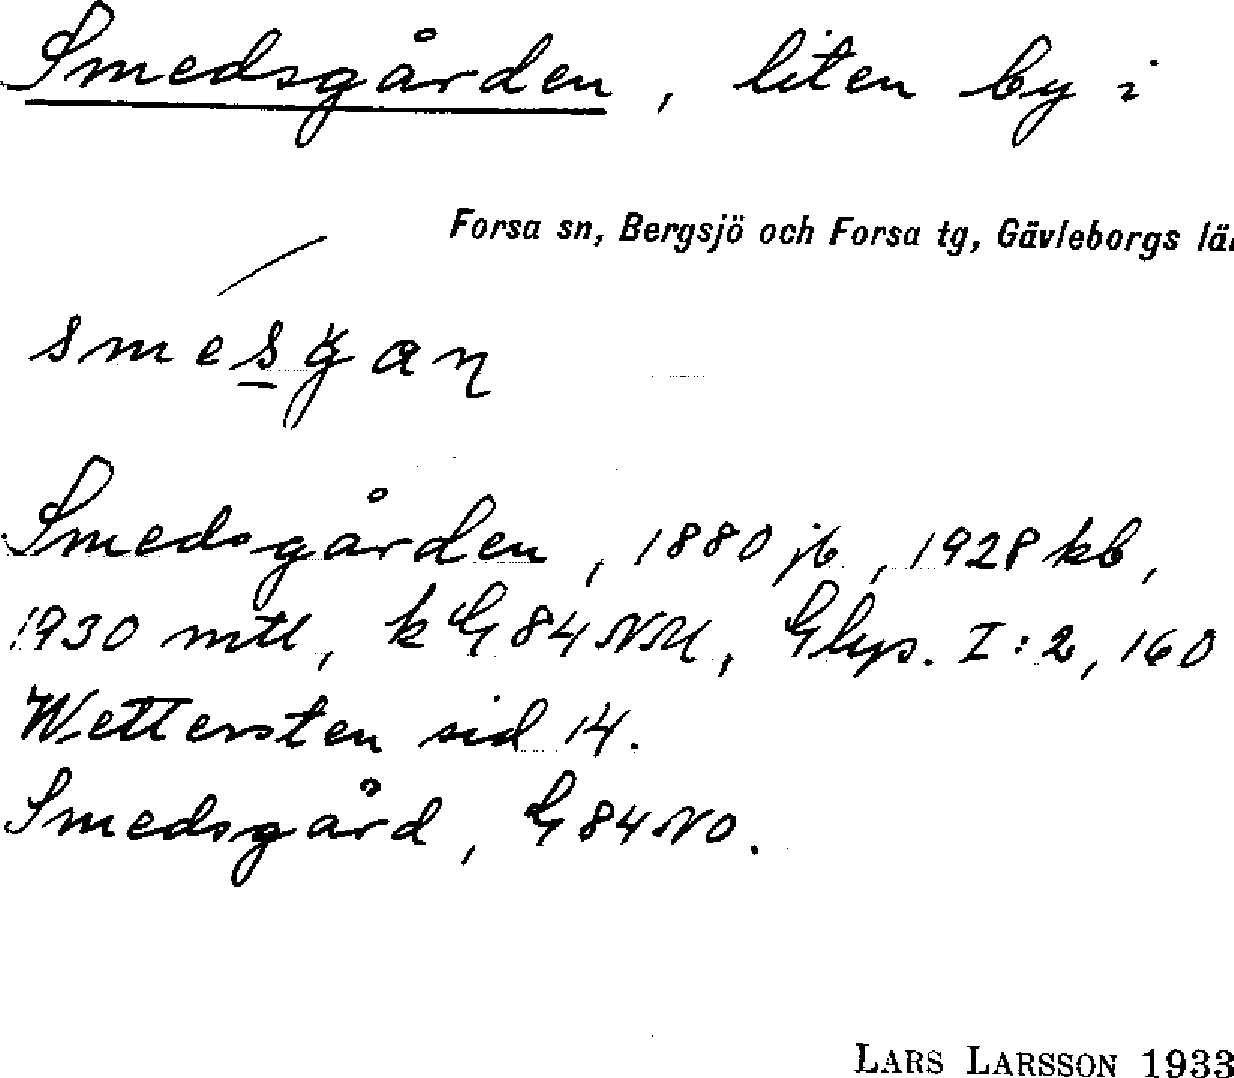 Smedsgården, liten by i
Forsa sn, Bergsjö och Forsa tg, Gävleborgs lä
Smedsgården, 1880 jb, 1928 kb,
1930 mtl, k G 84 NM, Glys. I:2, 160
Wettersten sid 14.
Smedsgård, G 84 NO.
LARS LARSSON 1933